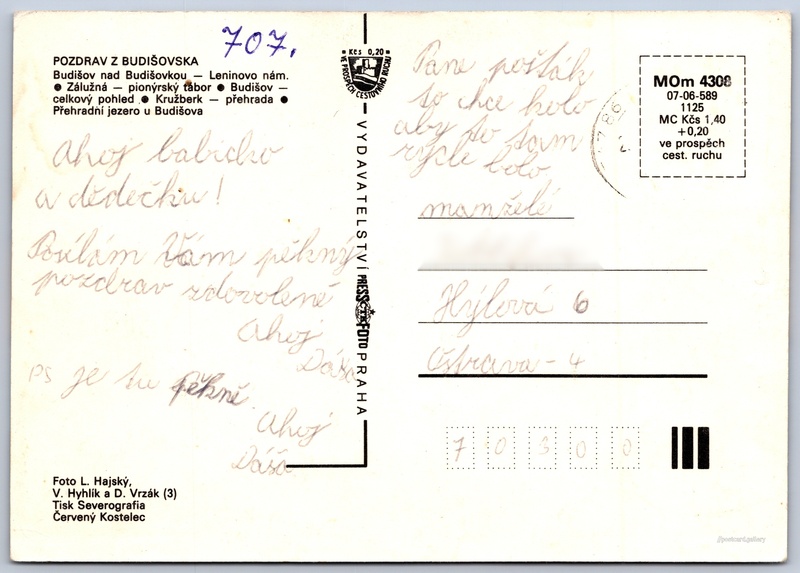 707.
POZDRAV Z BUDIŠOVSKA
Budišov nad Budišovkou — Leninovo nám.
● Zálužná — pionýrský tábor ● Budišov —
celkový pohled ● Kružberk — přehrada ●
Přehradní jezero u Budišova
Ahoj babičko
a dědečku!
Posílám Vám pěkný
pozdrav zdovolené
Ahoj
Dáša
PS je tu pěkně.
Ahoj
Dáša
Foto L. Hajský,
V. Hyhlík a D. Vrzák (3)
Tisk Severografia
Červený Kostelec
Kčs 0,20
VE PROSPĚCH CESTOVNÍHO RUCHU
VYDAVATELSTVÍ PRESSFOTO PRAHA
ČTK
Pane pošťák
to chce kolo
aby to tam
rycle bolo,
MOm 4308
07-06-589
1125
MC Kčs 1,40
+0,20
ve prospěch
cest. ruchu
manželé
Hýlová 6
Ostrava - 4
70300
//postcard.gallery